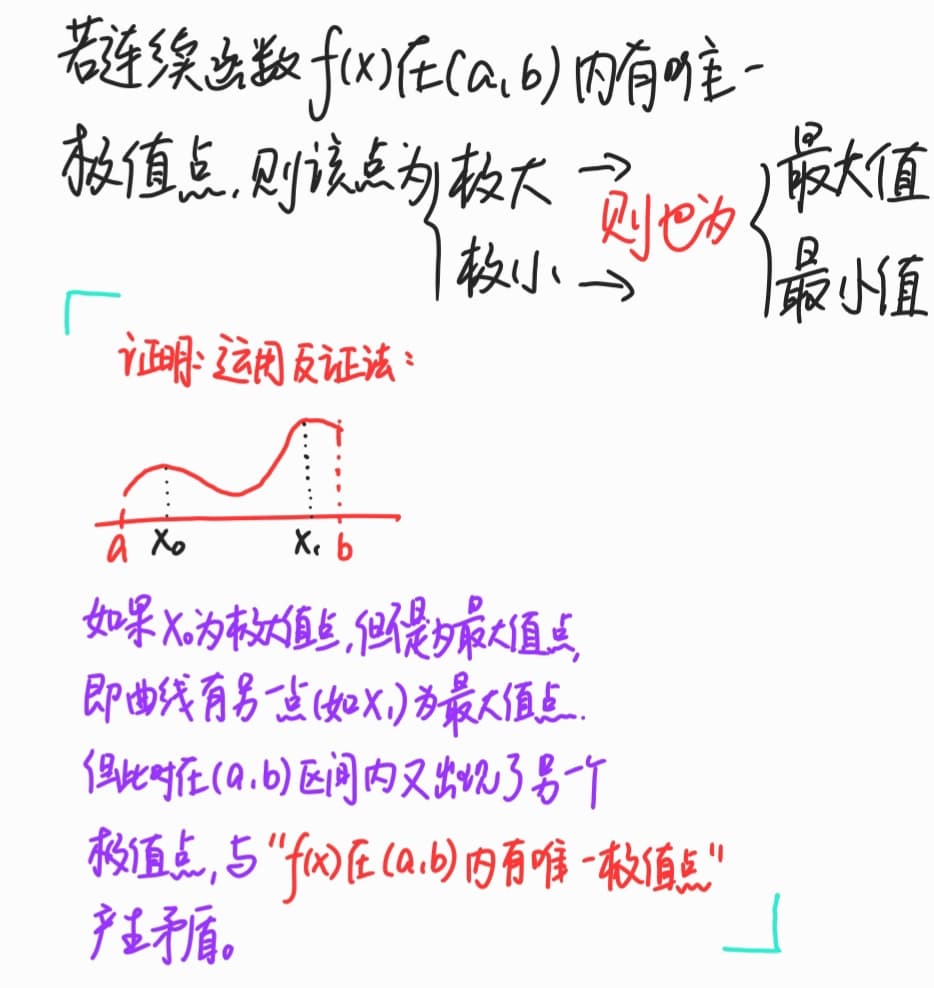 若连续函数f(x)在(a,b)内有唯一
极值点,则该点为{极大 → 则也为 {最大值
极小 → 最小值
证明:运用反证法:
a x₀ x₁ b
如果x₀为极大值点,但不是为最大值点,
即曲线有另一点(如x₁)为最大值点.
但此时在(a,b)区间内又出现了另一个
极值点,与"f(x)在(a,b)内有唯一极值点"
产生矛盾。